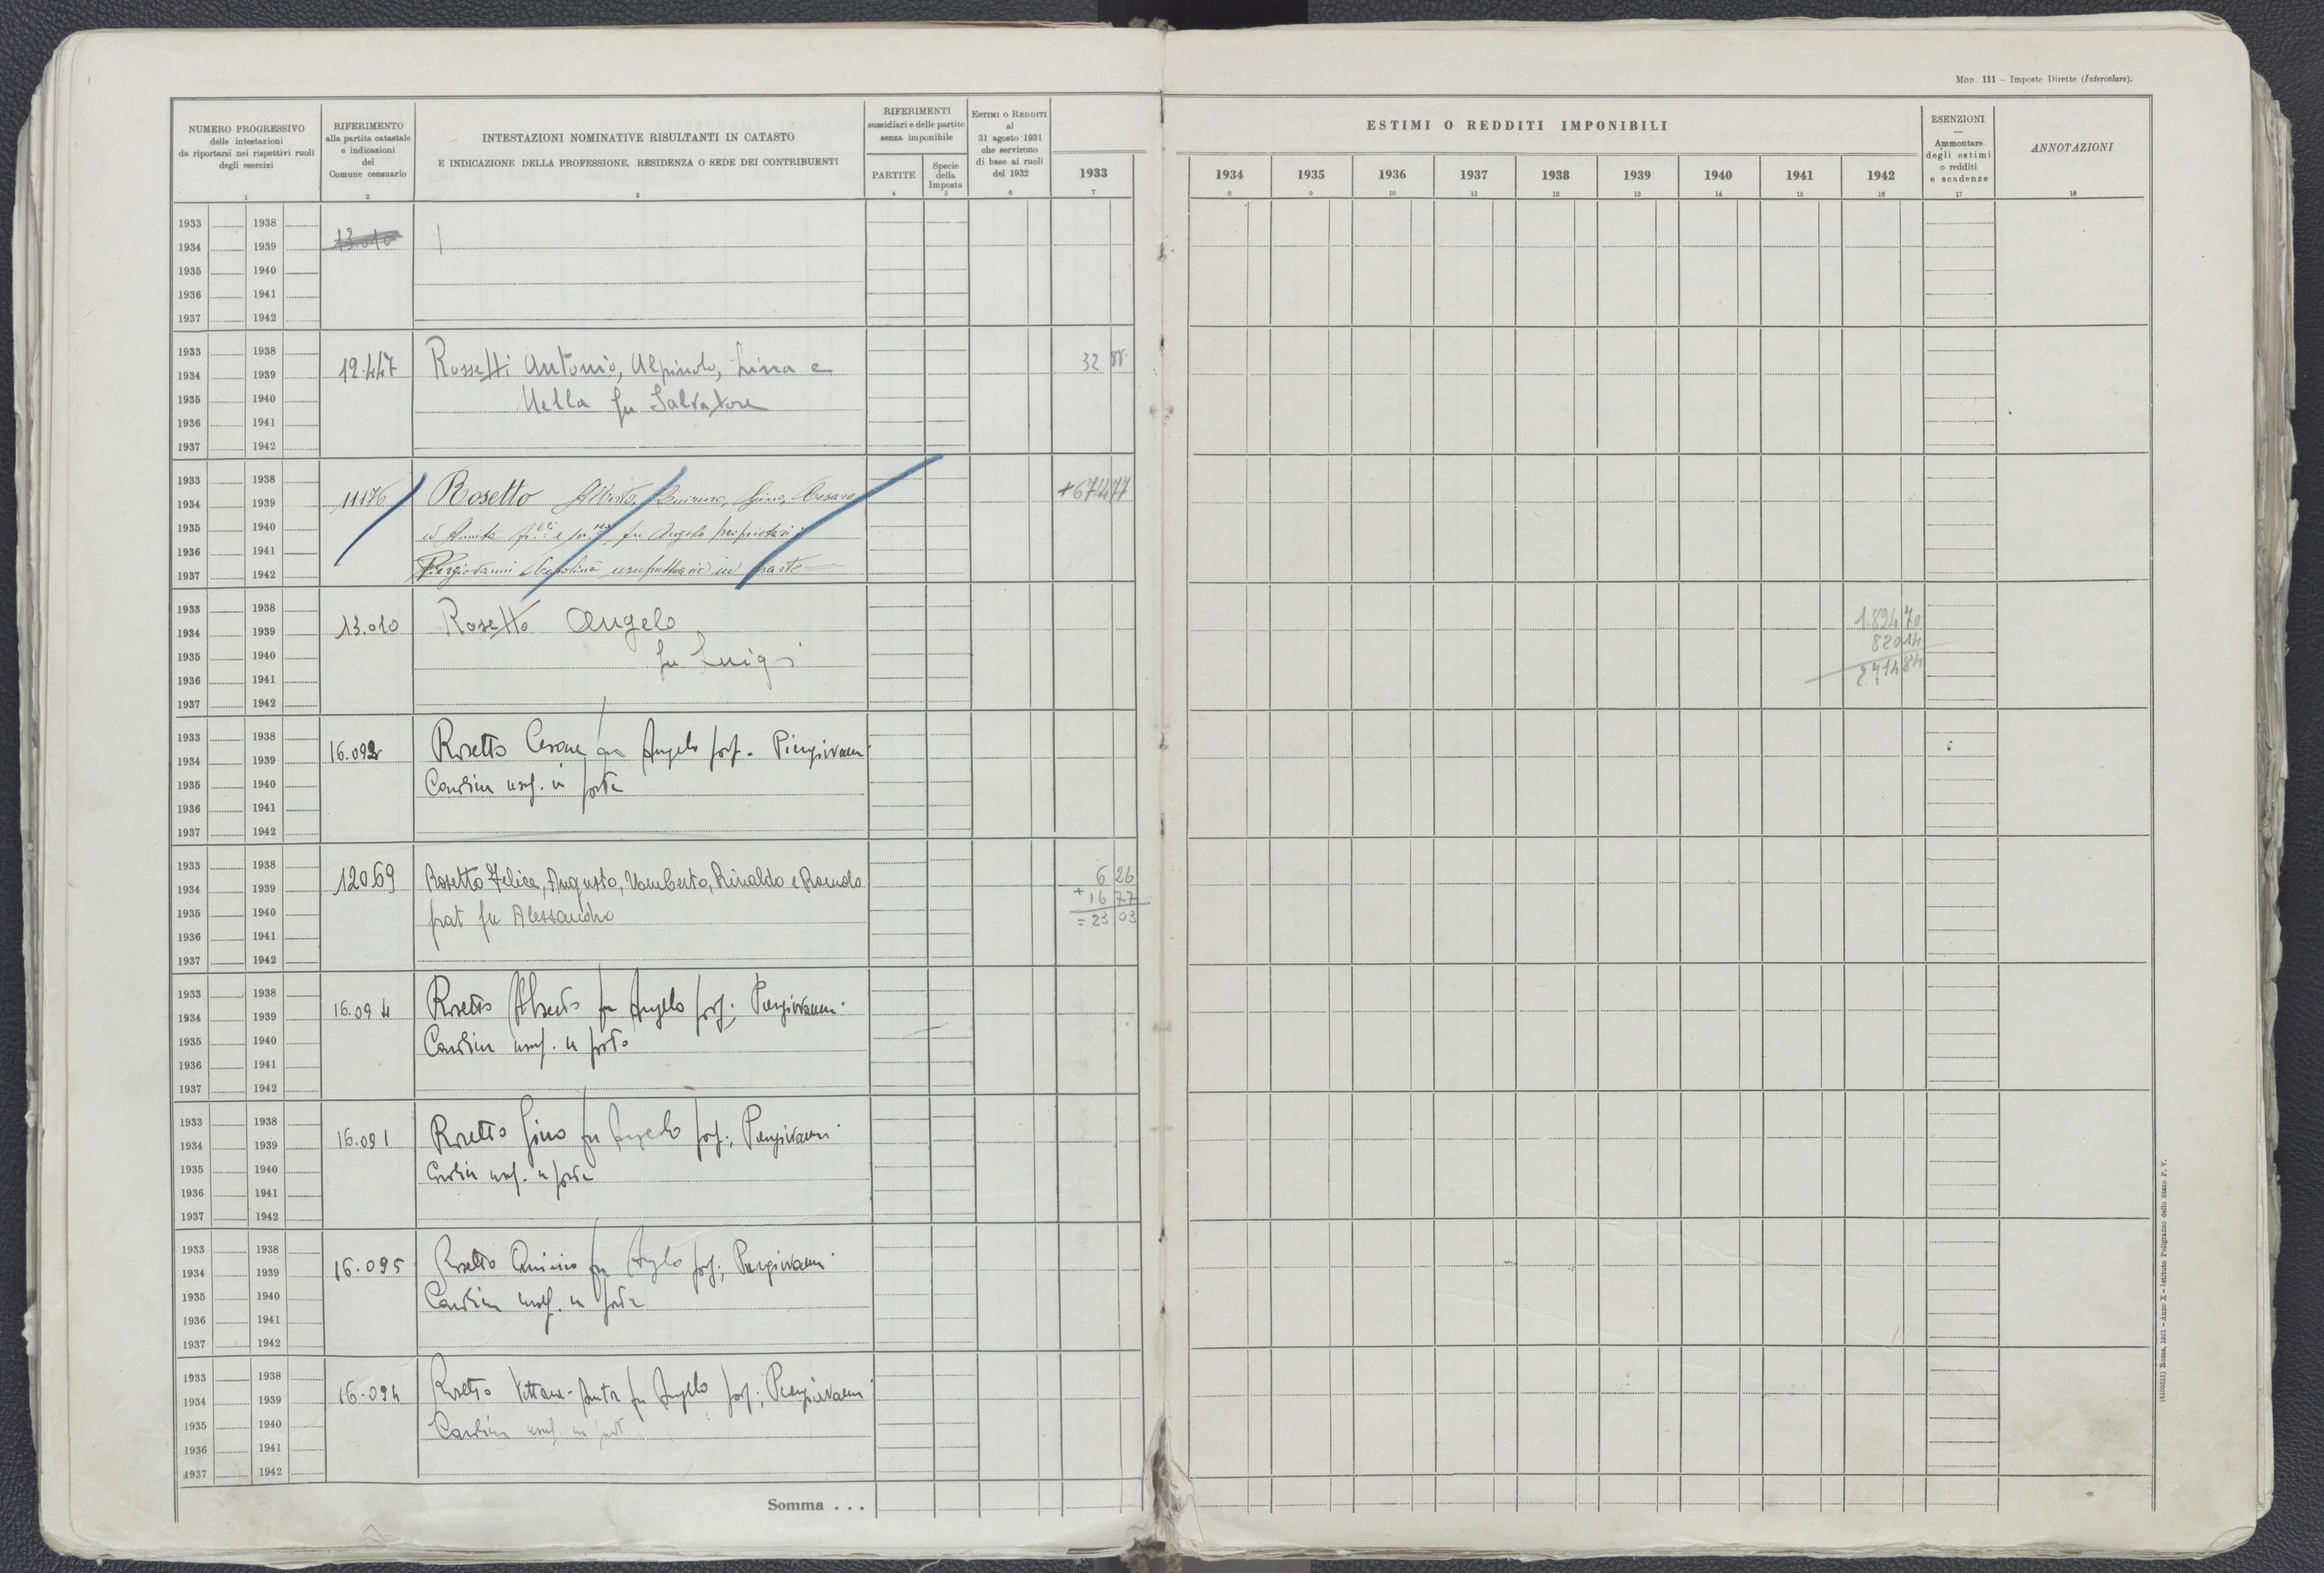 Mod. 111 – Imposte Dirette (Intercalare).
NUMERO PROGRESSIVO
delle intestazioni
da riportarsi nei rispettivi ruoli
degli esercizi
1
RIFERIMENTO
alla partita catastale
e indicazioni
del
Comune censuario
2
INTESTAZIONI NOMINATIVE RISULTANTI IN CATASTO
E INDICAZIONE DELLA PROFESSIONE, RESIDENZA O SEDE DEI CONTRIBUENTI
3
RIFERIMENTI
sussidiari e delle partite
senza imponibile
PARTITE
4
Specie
della
Imposta
5
Estimi o Redditi
al
31 agosto 1931
che servirono
di base ai ruoli
del 1932
6
1933
7
ESTIMI O REDDITI IMPONIBILI
1934 1935 1936 1937 1938 1939 1940 1941 1942
8 9 10 11 12 13 14 15 16
ESENZIONI
—
Ammontare
degli estimi
o redditi
e scadenze
17
ANNOTAZIONI
18
1933 1938
1934 1939 13.010
1935 1940
1936 1941
1937 1942
1933 1938
1934 1939 12.447 Rossetti Antonio, Alpinolo, Lina e 32
1935 1940 Nella fu Salvatore
1936 1941
1937 1942
1933 1938
1934 1939 11176 Rosetto Alberto, Quirino, Gino, Cesare +674 77
1935 1940 ed Annita fu Angelo proprietari
1936 1941
1937 1942 Piergiovanni usufruttuaria in parte
1933 1938 1.894 70
1934 1939 13.010 Rosetto Angelo 820 14
1935 1940 fu Luigi 2714 84
1936 1941
1937 1942
1933 1938
1934 1939 16.092 Rosetto Cesare fu Angelo prop. Piergiovanni
1935 1940 usuf. in parte
1936 1941
1937 1942
1933 1938 6 26
1934 1939 12069 Rosetto Felice, Augusto, Umberto, Rinaldo e Romolo + 16 77
1935 1940 frat fu Alessandro = 23 03
1936 1941
1937 1942
1933 1938
1934 1939 16.094 Rosetto Alberto fu Angelo prop; Piergiovanni
1935 1940 usuf. in parte
1936 1941
1937 1942
1933 1938
1934 1939 16.091 Rosetto Gino fu Angelo prop; Piergiovanni
1935 1940 usuf. in parte
1936 1941
1937 1942
1933 1938
1934 1939 16.095 Rosetto Quirino fu Angelo prop; Piergiovanni
1935 1940 usuf. in parte
1936 1941
1937 1942
1933 1938
1934 1939 16.094 Rosetto fu Angelo prop; Piergiovanni
1935 1940 usuf. in part
1936 1941
1937 1942
Somma . . .
Roma, 1931 – Anno X – Istituto Poligrafico dello Stato P. V.